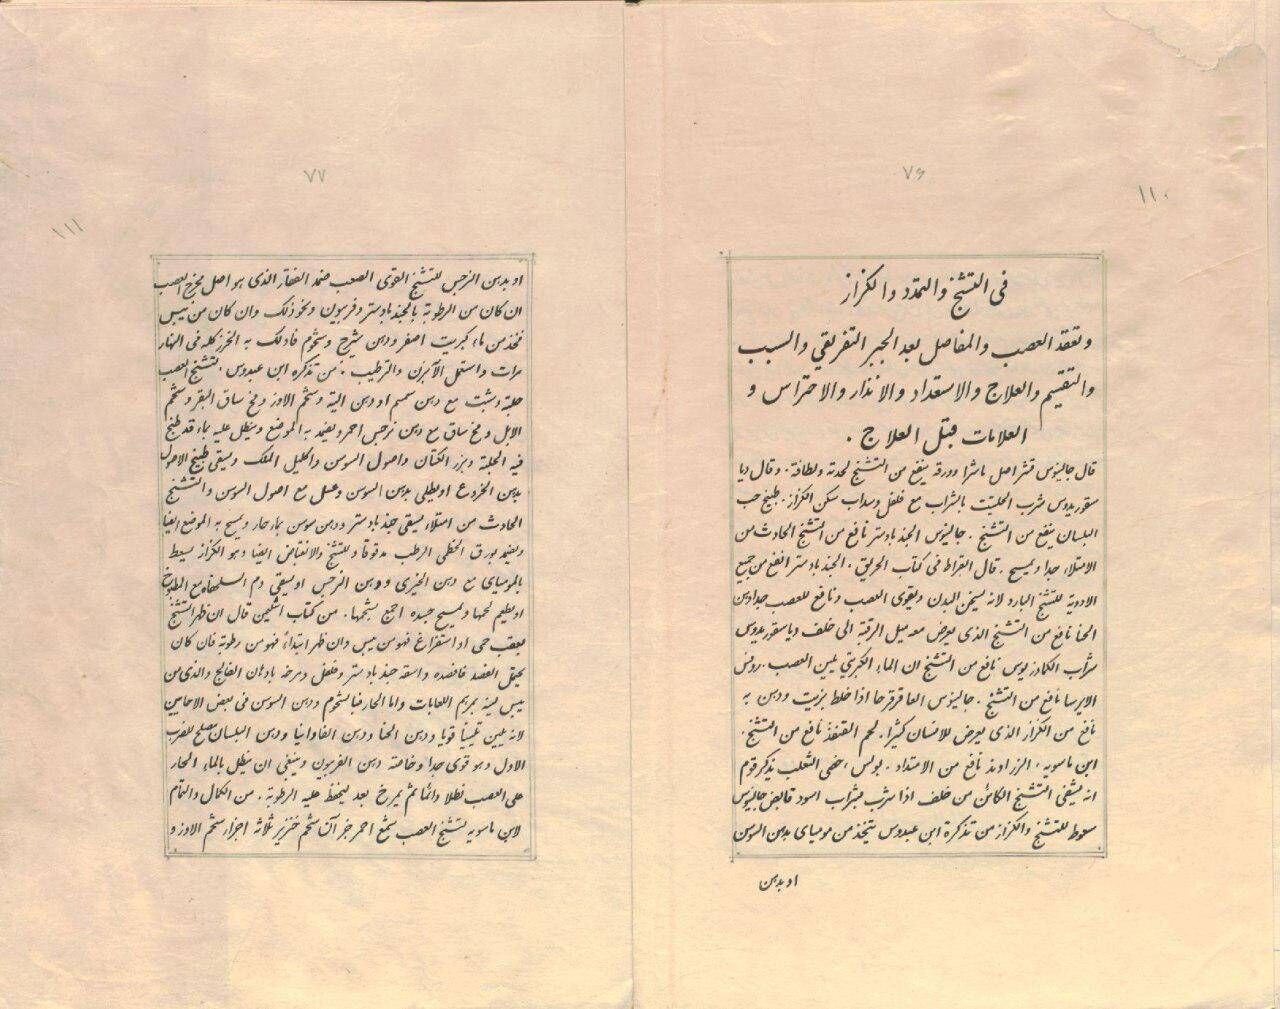 ٧٦
١١٠
في التشنج والتمدد والكزاز
وتعقد العصب والمفاصل بعد الجبر التفريقي والسبب
والتقسيم والعلاج والاستعداد والانذار والاحتراس و
العلامات قبل العلاج .
قال جالينوس قشر اصل باشرا وورقه ينفع من التشنج لحدته ولطافته . وقال ديا
سقوريدوس شرب الحلتيت بالشراب مع فلفل وسداب سكن الكزاز . طبيخ حب
البلسان ينفع من التشنج . جالينوس الجندبادستر نافع من التشنج الحادث من
الامتلاء جدا ويمسح . قال بقراط في كتاب الحريق . الجندبادستر انفع من جميع
الادوية للتشنج البارد لانه يسخن البدن ويقوى العصب ونافع للعصب جدا دهن
الحنا نافع من التشنج الذى يعرض معه ميل الرقبة الى خلف دياسقوريدوس
شراب الكمادريوس نافع من التشنج ان الماء الكبريتي يلين العصب . روفس
الايرسا نافع من التشنج . جالينوس العاقرقرحا اذا خلط بزيت ودهن به
نافع من الكزاز الذى يعرض للانسان كثيرا . لحم القنفذ نافع من التشنج .
ابن ماسويه . الزراوند نافع من الامتداد . بولس ، خصى الثعلب يذكر قوم
انه يشفى التشنج الكائن من خلف اذا شرب بشراب اسود قابض جالينوس
سعوط للتشنج والكزاز من تذكرة ابن عبدوس يتخذ من موميائ بدهن السوسن
او بدهن
٧٧
١١١
او بدهن النرجس للتشنج القوى الصعب ضمد الفقار الذى هو اصل مخرج العصب
ان كان من الرطوبة بالجندبادستر وفربيون ونحو ذلك وان كان من يبس
فخذ من ماء كبريت اصفر ودهن شيرج وشحوم فادلك به الخرز كله في النهار
مرات واستعمل الآبزن والترطيب . من تذكرة ابن عبدوس . لتشنج العصب
حلبة وشبت مع دهن سمسم او دهن الية وشحم الاوز ومخ ساق البقر وشحم
الايل ومخ ساق مع دهن نرجس احمر ويضمد به الموضع وينطل عليه بماء قد طبخ
فيه الحلبة وبزر الكتان واصول السوسن واكليل الملك ويسقى طبيخ الاصول
بدهن الخروع او يطلى بدهن السوسن وعسل مع اصول السوسن والتشنج
الحادث من امتلاء يسقى جندبادستر ودهن سوسن بماء حار ويمسح به الموضع ايضا
ويضمد بورق الخطمى الرطب مدقوقا وللتشنج والانقباض ايضا وهو الكزاز يسعط
بالموميائ مع دهن الخيرى ودهن النرجس او يسقى دم السلحفاة مع المطبوخ
او يطعم لحمها ويمسح جسده اجمع بشحمها . من كتاب اشليمن قال ان ظهر التشنج
بعقب حمى او استفراغ فهو من يبس وان ظهر ابتداء فهو من رطوبة فان كان
يحتمل الفصد فافصده واسقه جندبادستر وفلفل ومرخه بادهان الفالج والذى من
يبس لينه بمريم اللعابات واما الحار فبالشحوم ودهن السوسن في بعض الاحايين
لانه يلين تليينا قويا ودهن الحنا ودهن الفاوانيا ودهن البلسان يصلح للضرب
الاول وهو قوى جدا وخاصته دهن الفربيون وينبغى ان ينطل بالماء الحار
على العصب نطلا دائما ثم يمرخ بعد ليحفظ عليه الرطوبة . من الكمال والتمام
لابن ماسويه لتشنج العصب شمع احمر جزآن شحم خنزير ثلاثة اجزاء شحم الاوز و